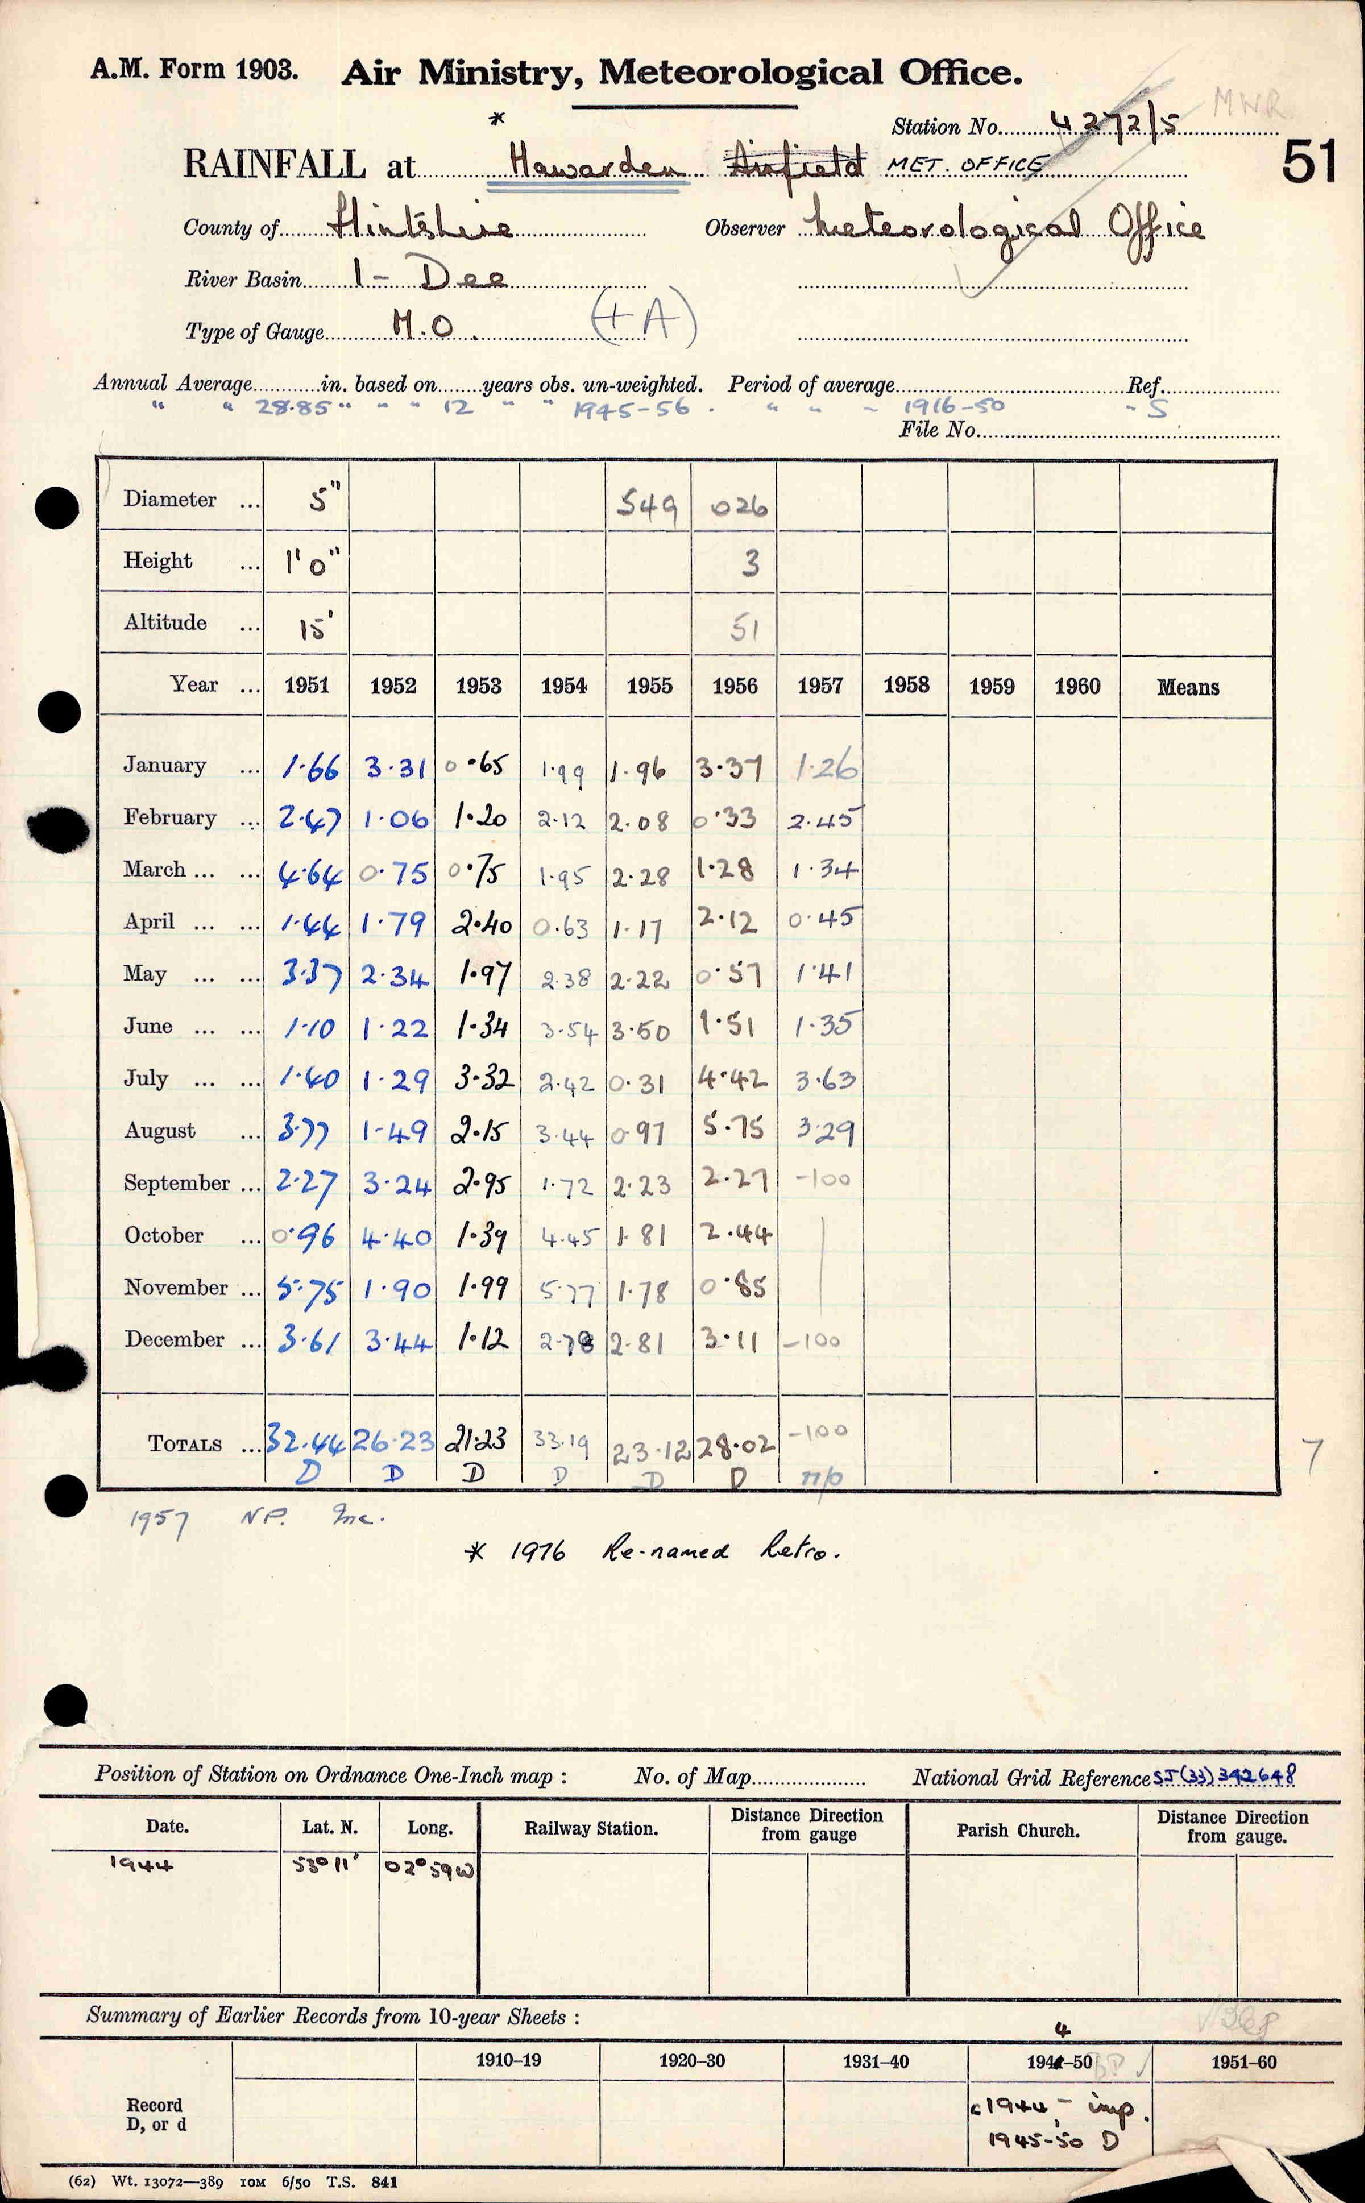 A.M. Form 1903. Air Ministry, Meteorological Office.
MWR
Station No. 4272/5
51
*
RAINFALL at Hawarden Airfield MET. OFFICE
County of Flintshire Observer Meteorological Office
River Basin 1 - Dee
Type of Gauge M.O. (+A)
Annual Average in. based on years obs. un-weighted. Period of average Ref.
" " 28.85 " " " 12 " " 1945-56. " " " 1916-50 " S
File No.
Diameter ... 5" 549 026
Height ... 1'0" 3
Altitude ... 15' 51
Year ... 1951 1952 1953 1954 1955 1956 1957 1958 1959 1960 Means
January ... 1.66 3.31 0.65 1.99 1.96 3.37 1.26
February ... 2.47 1.06 1.20 2.12 2.08 0.33 2.45
March ... ... 4.64 0.75 0.75 1.95 2.28 1.28 1.34
April ... ... 1.44 1.79 2.40 0.63 1.17 2.12 0.45
May ... ... 3.37 2.34 1.97 2.38 2.22 0.57 1.41
June ... ... 1.10 1.22 1.34 3.54 3.50 1.51 1.35
July ... ... 1.40 1.29 3.32 2.42 0.31 4.42 3.63
August ... 3.77 1.49 2.15 3.44 0.97 5.75 3.29
September ... 2.27 3.24 2.95 1.72 2.23 2.27 -100
October ... 0.96 4.40 1.39 4.45 1.81 2.44
November ... 5.75 1.90 1.99 5.77 1.78 0.85
December ... 3.61 3.44 1.12 2.78 2.81 3.11 -100
TOTALS ... 32.44 26.23 21.23 33.19 23.12 28.02 -100
D D D D D D n/p
7
1957 NP. Inc.
* 1976 Re-named Retro.
Position of Station on Ordnance One-Inch map : No. of Map National Grid Reference SJ(33)342648
Date. Lat. N. Long. Railway Station. Distance Direction from gauge Parish Church. Distance Direction from gauge.
1944 53°11' 02°59W
Summary of Earlier Records from 10-year Sheets :
4
1910-19 1920-30 1931-40 1941-50 1951-60
Record D, or d
c1944 - imp.
1945-50 D
(62) Wt. 13072—389 IOM 6/50 T.S. 841